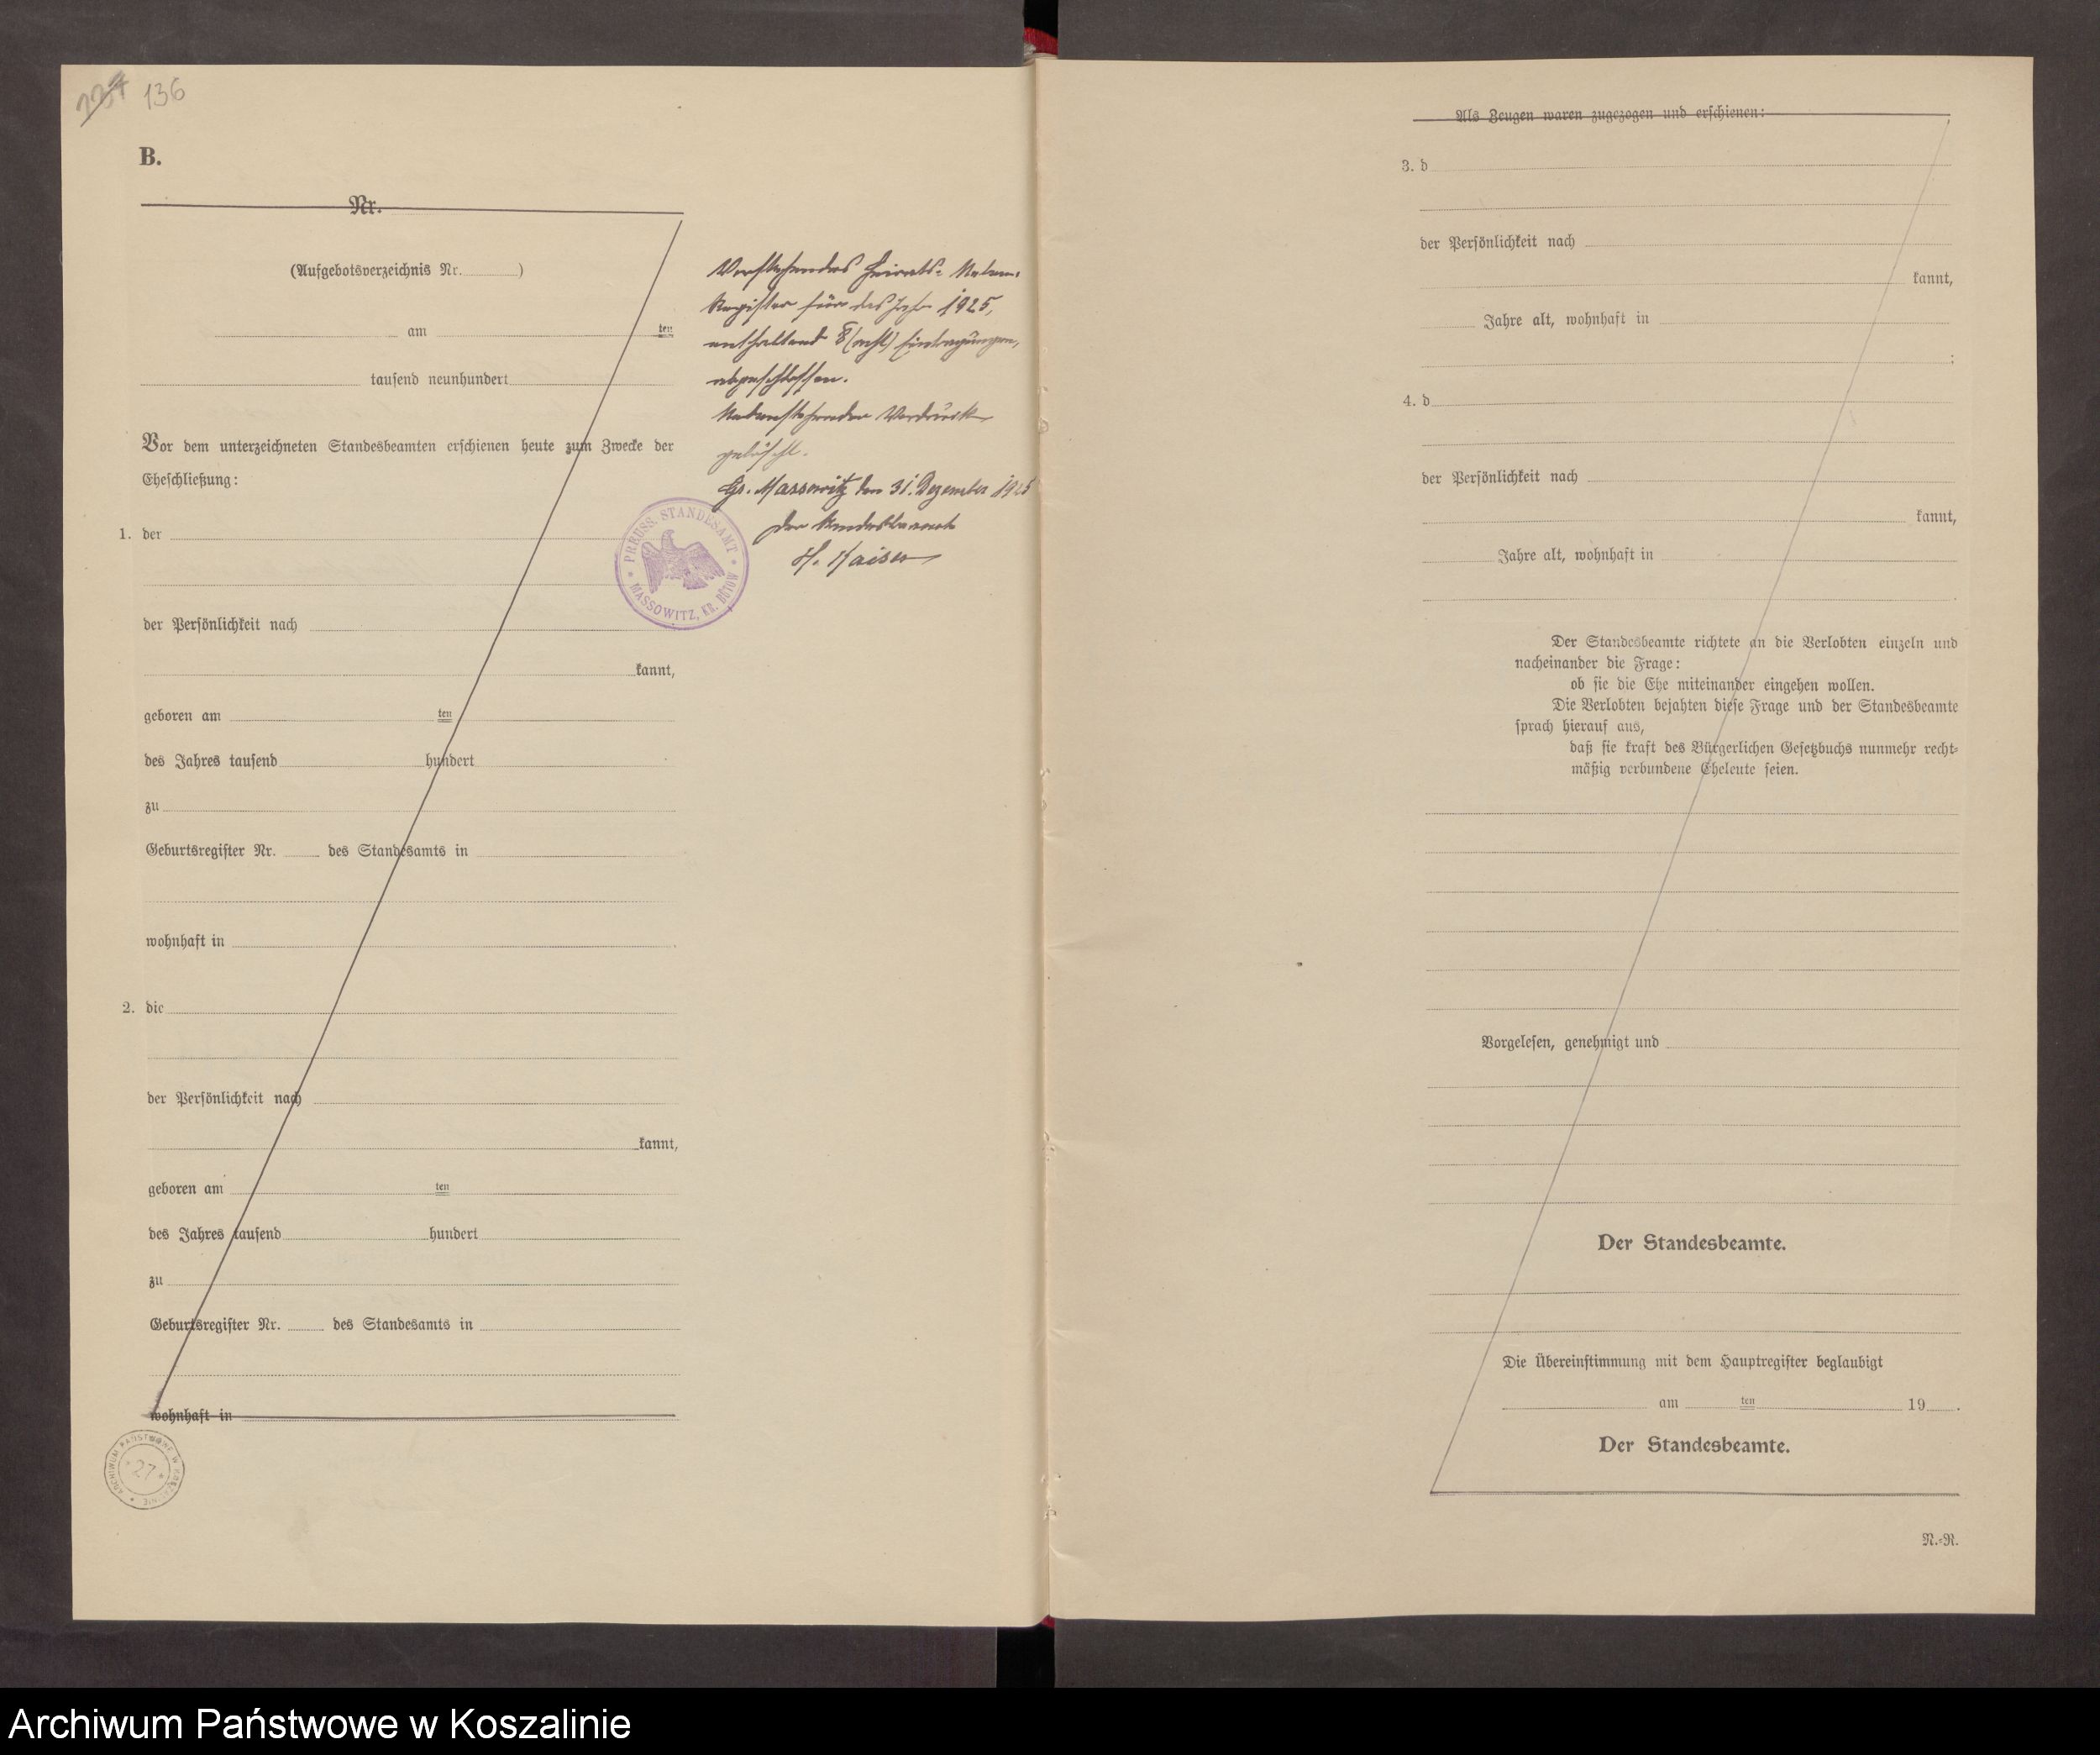 234 136
B.
Nr.
(Aufgebotsverzeichnis Nr. )
am ten
tausend neunhundert
Vor dem unterzeichneten Standesbeamten erschienen heute zum Zwecke der
Eheschließung:
1. der
der Persönlichkeit nach
kannt,
geboren am ten
des Jahres tausend hundert
zu
Geburtsregister Nr. des Standesamts in
wohnhaft in
2. die
der Persönlichkeit nach
kannt,
geboren am ten
des Jahres tausend hundert
zu
Geburtsregister Nr. des Standesamts in
wohnhaft in
Vorstehendes Heirats-Neben-
Register für das Jahr 1925,
enthaltend 8 (acht) Eintragungen,
abgeschlossen.
Nebenstehender Vordruck
gelöscht.
Gr. Massowitz den 31. Dezember 1925
Der Standesbeamte
H. Kaiser
PREUSS. STANDESAMT
MASSOWITZ, KR. BÜTOW
ARCHIWUM PAŃSTWOWE W KOSZALINIE
27
Als Zeugen waren zugezogen und erschienen:
3. d
der Persönlichkeit nach
kannt,
Jahre alt, wohnhaft in
;
4. d
der Persönlichkeit nach
kannt,
Jahre alt, wohnhaft in
.
Der Standesbeamte richtete an die Verlobten einzeln und
nacheinander die Frage:
ob sie die Ehe miteinander eingehen wollen.
Die Verlobten bejahten diese Frage und der Standesbeamte
sprach hierauf aus,
daß sie kraft des Bürgerlichen Gesetzbuchs nunmehr recht-
mäßig verbundene Eheleute seien.
Vorgelesen, genehmigt und
Der Standesbeamte.
Die Übereinstimmung mit dem Hauptregister beglaubigt
am ten 19 .
Der Standesbeamte.
N.-R.
Archiwum Państwowe w Koszalinie